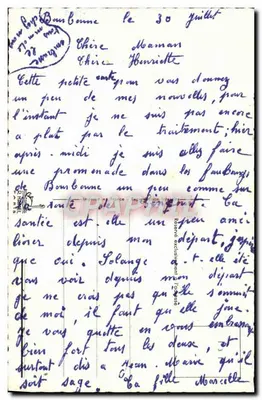 Bourbonne le 30 juillet
Chère Maman
Chère Henriette
Cette petite carte pour vous donner
un peu de mes nouvelles, pour
l'instant je ne suis pas encore
a plats par le traitement, hier
après-midi je suis allez faire
une promenade dans les faubourgs
de Bourbonne un peu comme sur
la route de
santée est-elle un peu amé
liorer depuis mon départ, j'espère
que oui Solange a-t-elle été
vous voir depuis mon départ
je ne crois pas qu'elle s'ennuit
de moi, il faut qu'elle joue.
Je vous quitte en vous embrassant
bien fort tous les deux, et
surtout dis a Jean-Marie qu'il
soit sage. Ta fille Marcelle